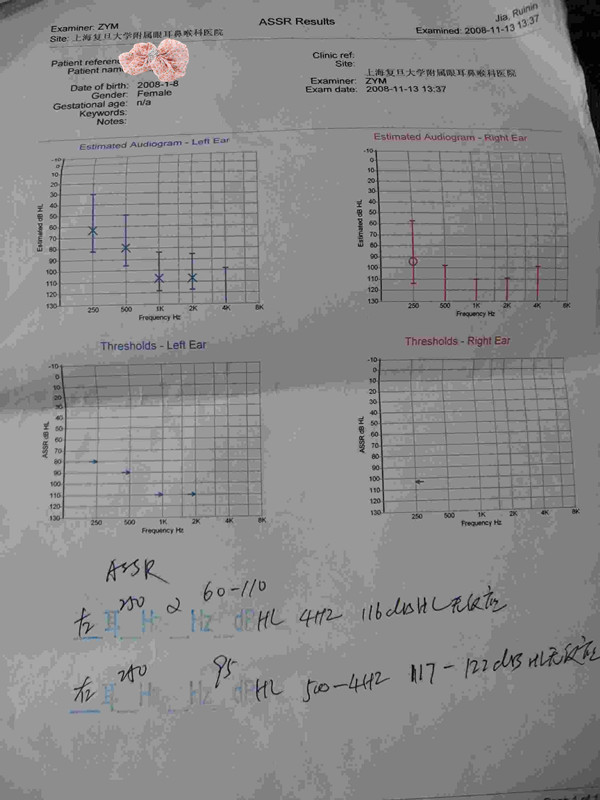 Jia, Ruinin
Examiner: ZYM
ASSR Results
Examined: 2008-11-13 13:37
Site: 上海复旦大学附属眼耳鼻喉科医院
Clinic ref:
Patient
Site: 上海复旦大学附属眼耳鼻喉科医院
Patient
Examiner: ZYM
Date of birth: 2008-1-8
Exam date: 2008-11-13 13:37
Gender: Female
Gestational age: n/a
Keywords:
Notes:
Estimated Audiogram - Left Ear
Estimated Audiogram - Right Ear
Estimated dB HL
-10 0 10 20 30 40 50 60 70 80 90 100 110 120 130
250 500 1K 2K 4K 8K
Frequency Hz
Estimated dB HL
-10 0 10 20 30 40 50 60 70 80 90 100 110 120 130
250 500 1K 2K 4K 8K
Frequency Hz
Thresholds - Left Ear
Thresholds - Right Ear
ASSR dB HL
-10 0 10 20 30 40 50 60 70 80 90 100 110 120 130
250 500 1K 2K 4K 8K
Frequency Hz
ASSR dB HL
-10 0 10 20 30 40 50 60 70 80 90 100 110 120 130
250 500 1K 2K 4K 8K
Frequency Hz
ASSR
左 250 2 Hz 60-110 dB HL 4HZ 116dB HL无反应
右 250 H 95 HL 500-4HZ 117-122dB HL无反应